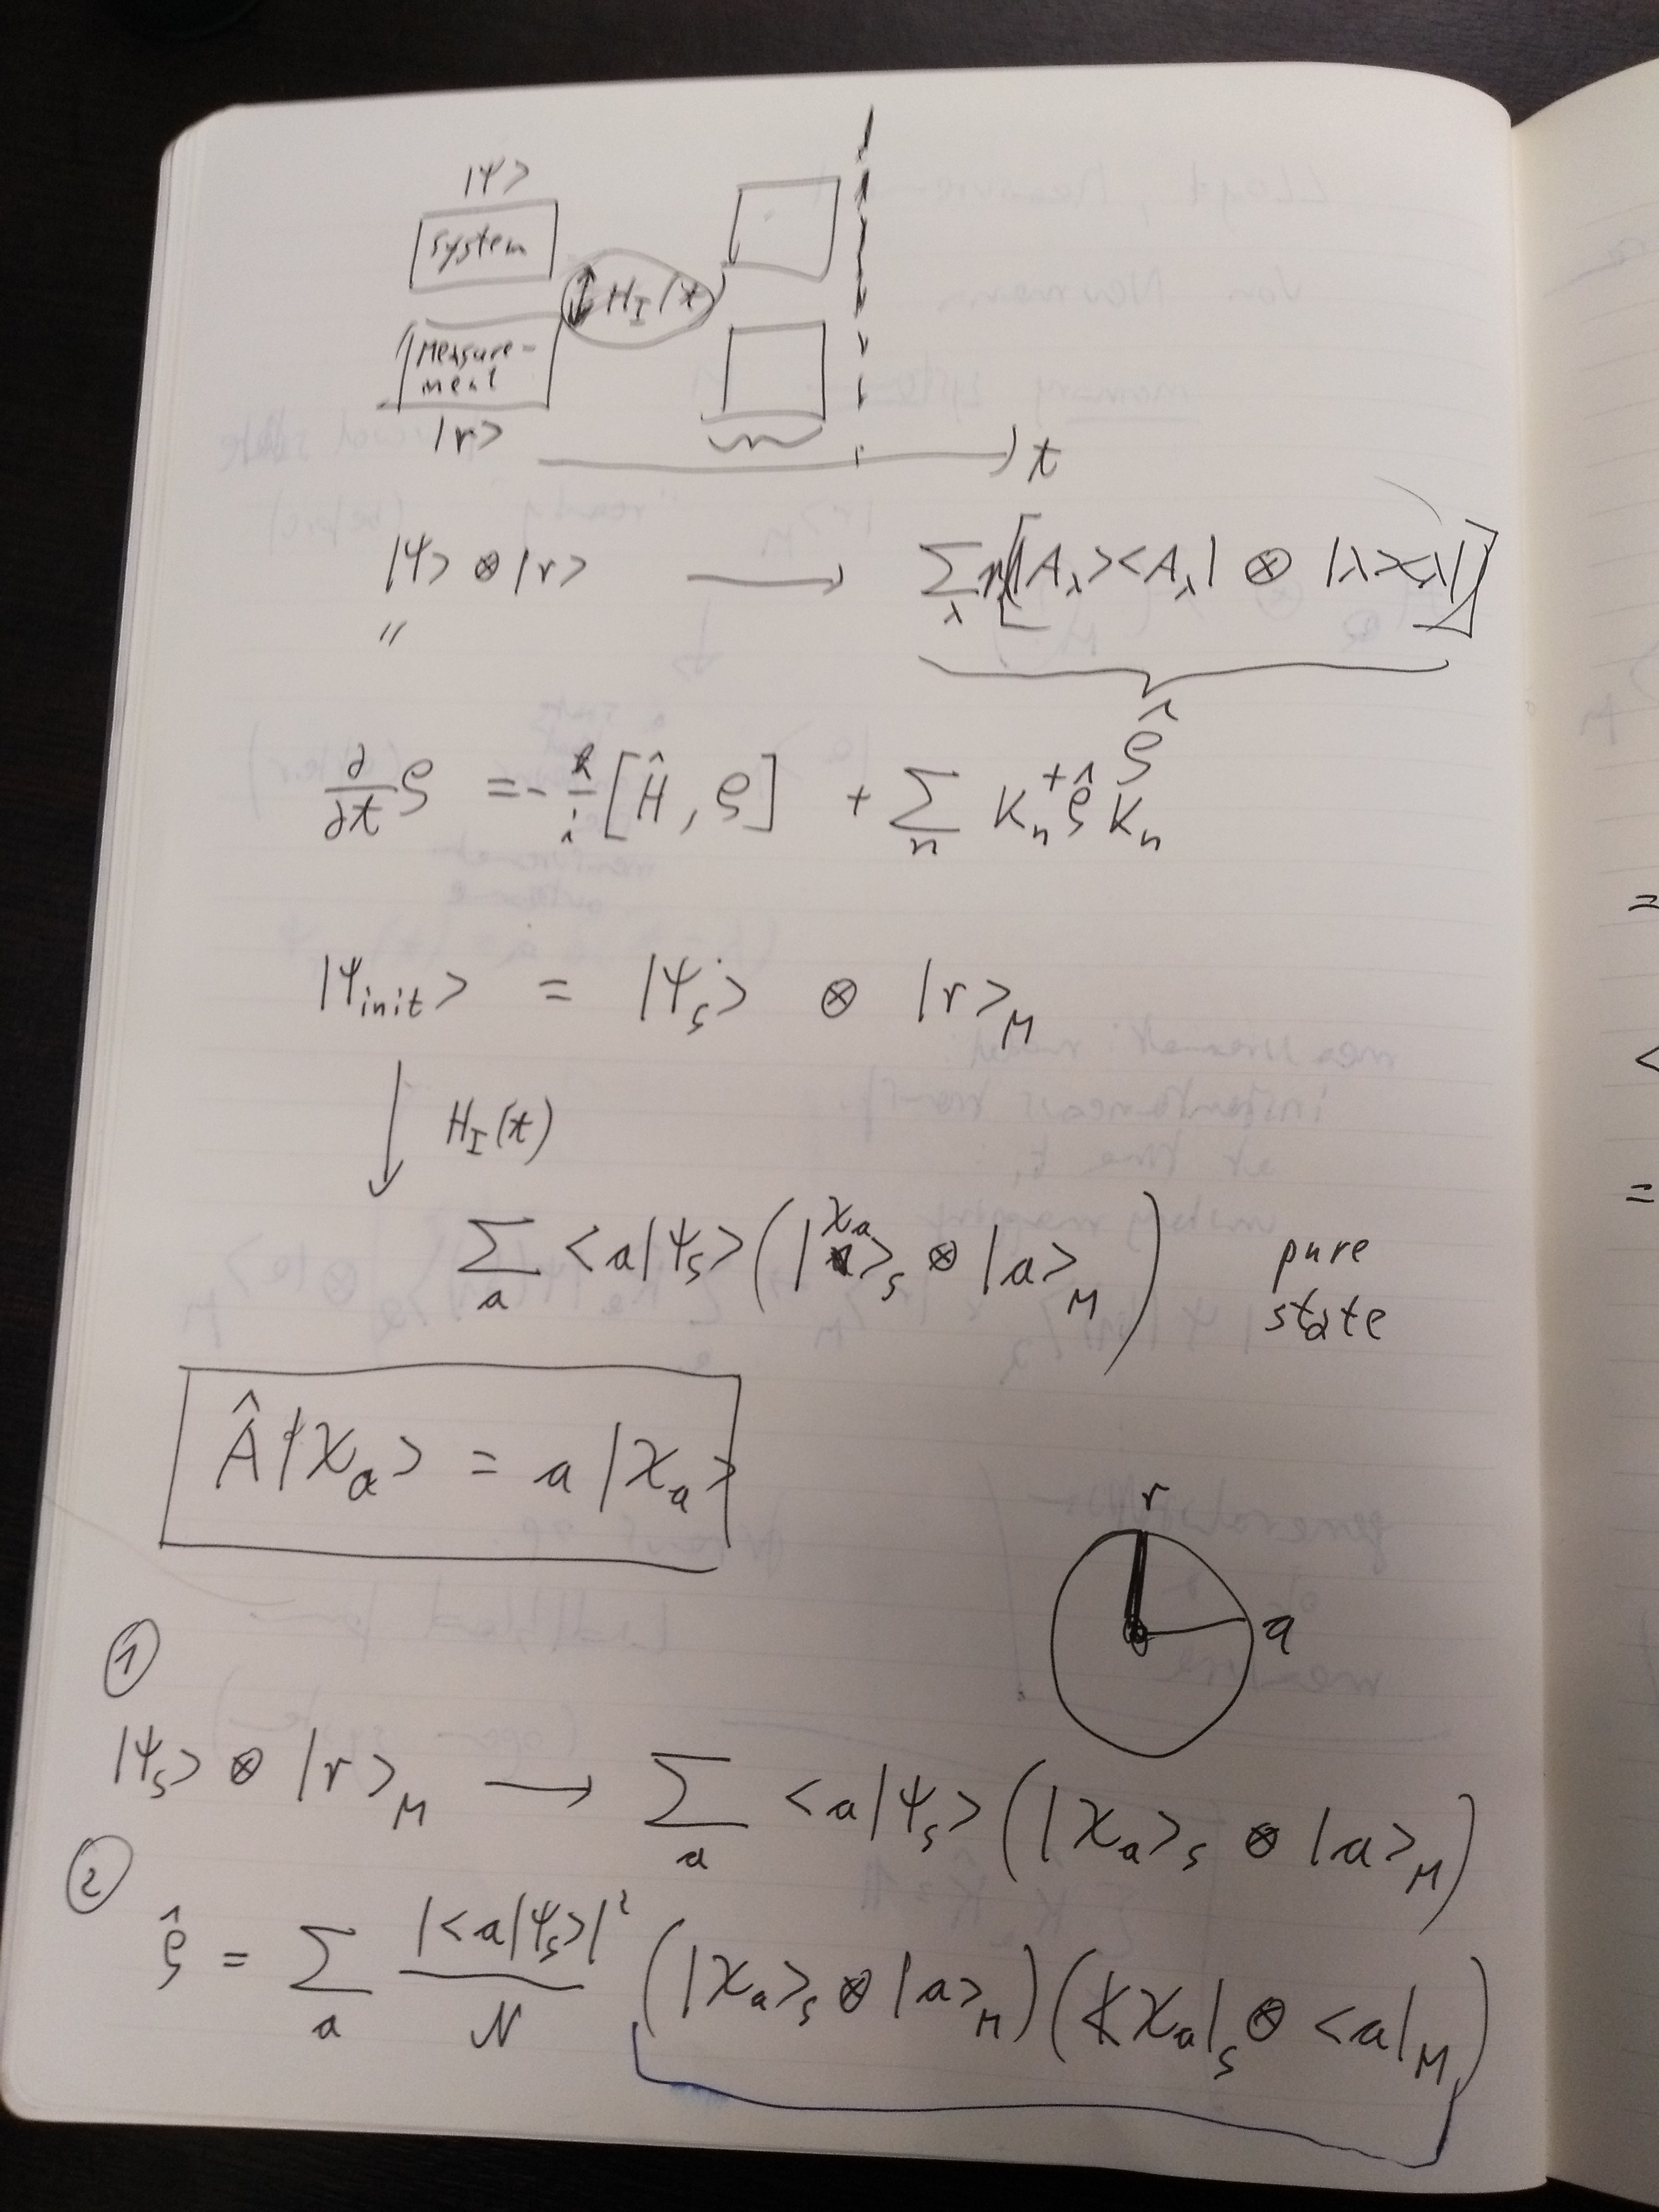 |Ψ>
system
H_I(t)
Measure-
ment
|r>
t
|Ψ> ⊗ |r> ⟶ Σ_λ [|A_λ><A_λ| ⊗ |λ><λ|]
"
ρ̂
∂/∂t ρ = - ħ/i [Ĥ, ρ] + Σ_n K_n^+ ρ̂ K_n
|Ψ_init> = |Ψ_S> ⊗ |r>_M
↓ H_I(t)
Σ_a <a|Ψ_S> (|χ_a>_S ⊗ |a>_M) pure
state
Â|χ_a> = a|χ_a>
r
a
①
|Ψ_S> ⊗ |r>_M ⟶ Σ_a <a|Ψ_S> (|χ_a>_S ⊗ |a>_M)
②
ρ̂ = Σ_a |<a|Ψ_S>|²/N (|χ_a>_S ⊗ |a>_M)(<χ_a|_S ⊗ <a|_M)